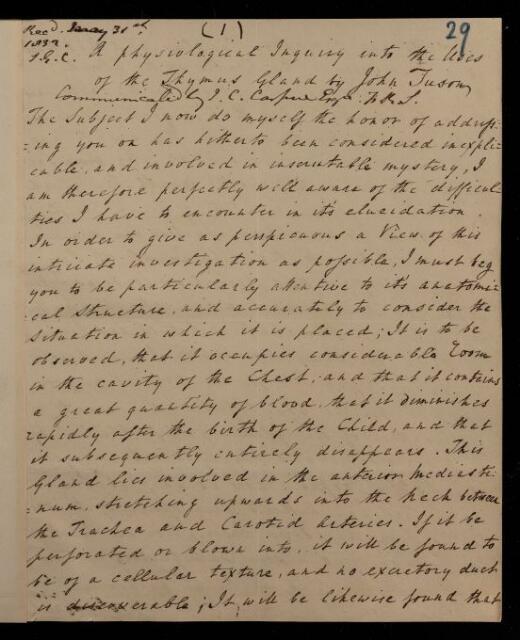 Recd. Jany 31st (1) 29
1832.
J.G.C. A physiological Inquiry into the Uses
of the Thymus Gland by John Tuson
Communicated by J. C. Carpue Esqr. F.R.S.
The Subject I now do myself the honor of address-
=ing you on has hitherto been considered inexpli-
cable, and involved in inscrutable mystery, I
am therefore perfectly well aware of the difficul
ties I have to encounter in it's elucidation.
In order to give as perspicuous a View of this
intricate investigation as possible, I must beg
you to be particularly attentive to it's anatomi-
=cal Structure, and accurately to consider the
Situation in which it is placed; It is to be
observed, that it occupies considerable Room
in the cavity of the Chest, and that it contains
a great quantity of blood, that it diminishes
rapidly after the birth of the Child, and that
it subsequently entirely disappears. This
Gland lies involved in the anterior Mediasti-
=num, stretching upwards into the Neck between
the Trachea and Carotid Arteries. If it be
perforated or blown into, it will be found to
be of a cellular texture, and no excretory duct
is discoverable; It will be likewise found that